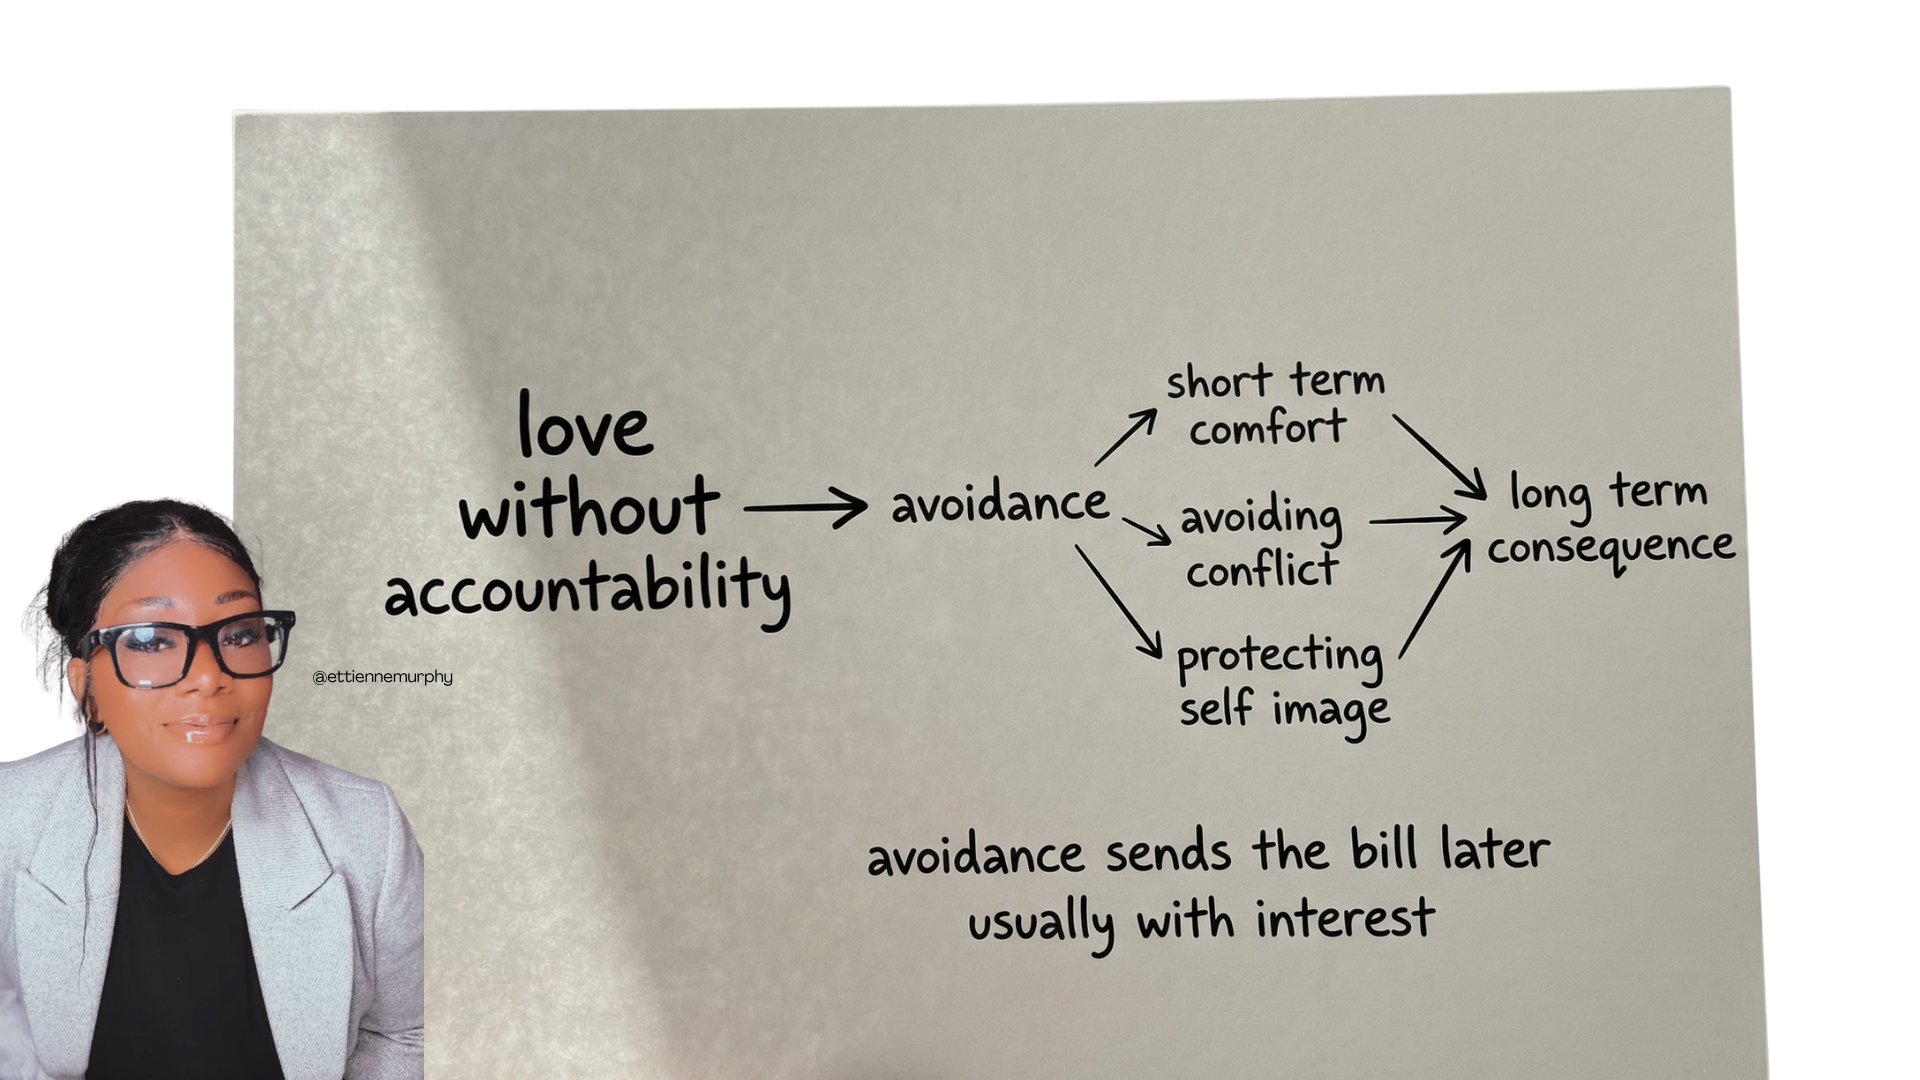 love
without
accountability
avoidance
short term
comfort
avoiding
conflict
protecting
self image
long term
consequence
@ettiennemurphy
avoidance sends the bill later
usually with interest